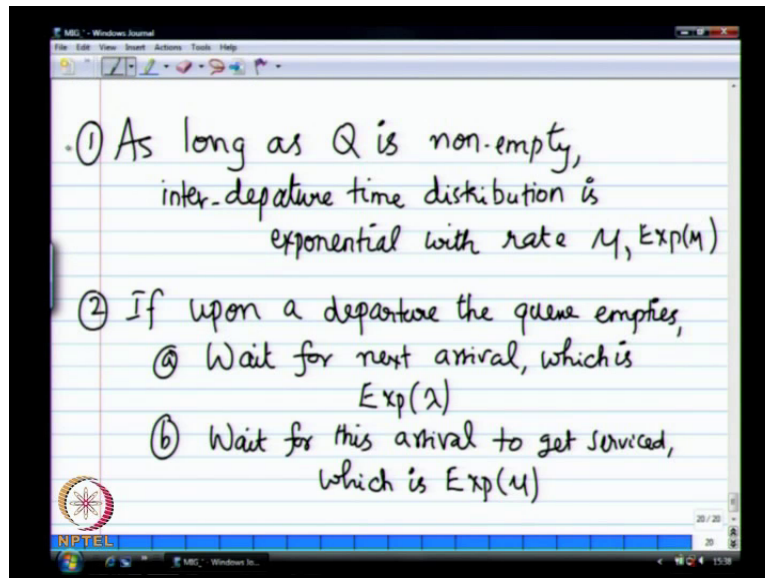 MIG_' - Windows Journal
File Edit View Insert Actions Tools Help
① As long as Q is non-empty,
inter-depature time distribution is
exponential with rate μ, Exp(μ)
② If upon a departure the queue empties,
ⓐ Wait for next arrival, which is
Exp(λ)
ⓑ Wait for this arrival to get serviced,
which is Exp(μ)
20 / 20
20
NPTEL
MIG_' - Windows Jo...
15:38